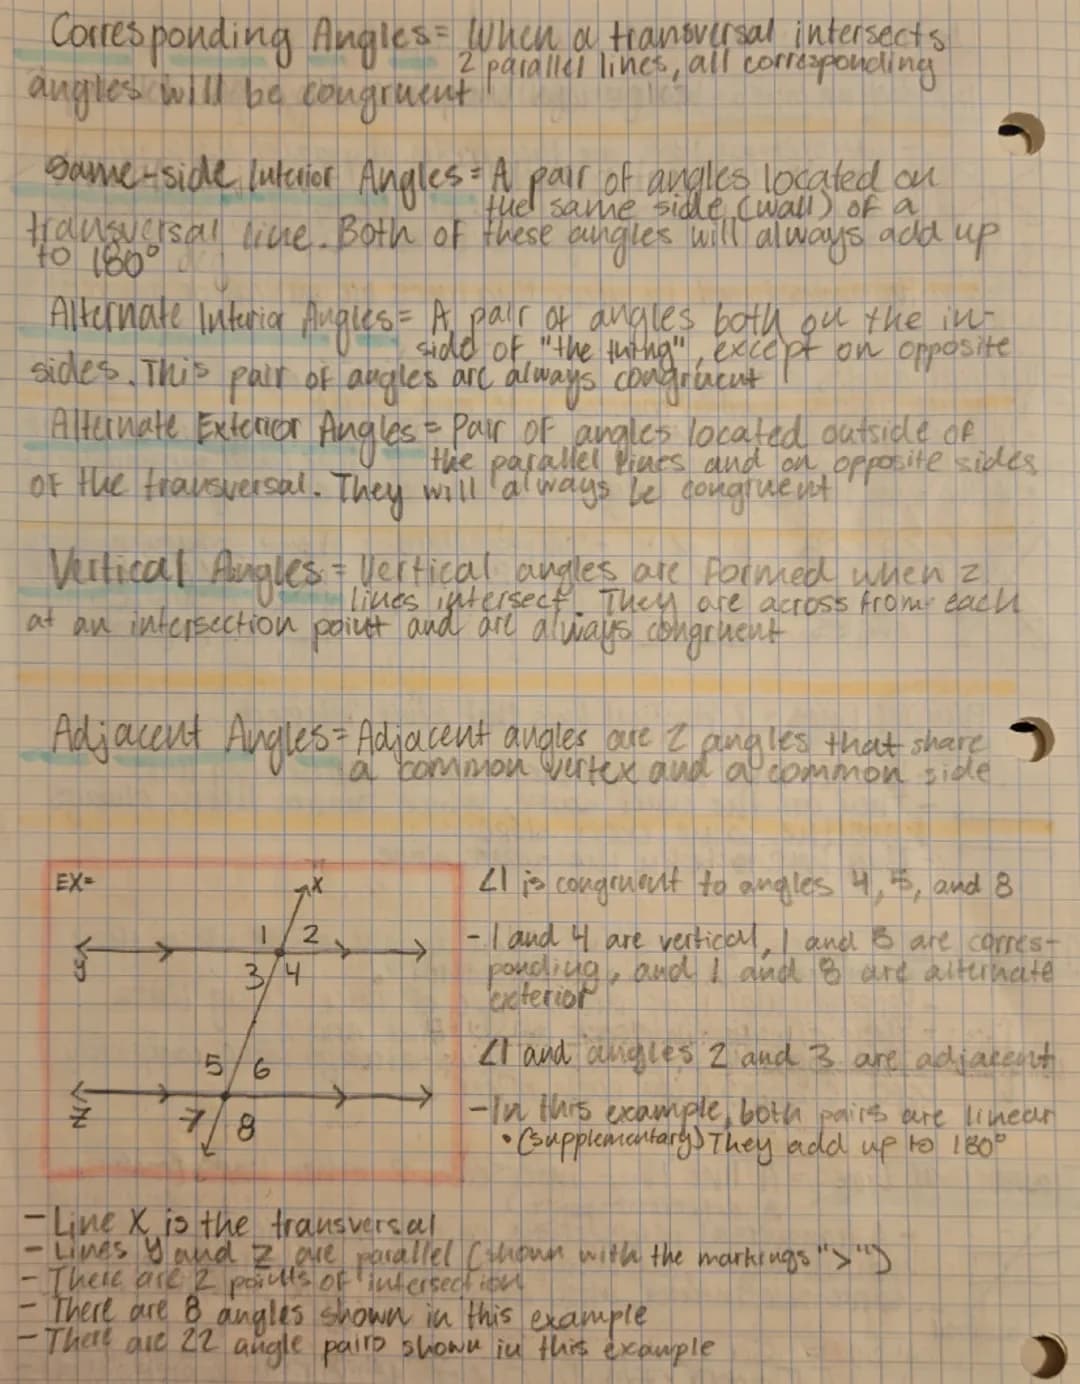 Corresponding Angles= When a transversal intersects
2 parallel lines, all corresponding
angles will be congruent
Same-side Interior Angles = A pair of angles located on
the same side (wall) of a
transversal line. Both of these angles will always add up
to 180°
Alternate Interior Angles= A pair of angles both on the in-
side of "the thing", except on opposite
sides. This pair of angles are always congruent
Alternate Exterior Angles = Pair of angles located outside of
the parallel lines and on opposite sides
of the transversal. They will always be congruent
Vertical Angles = Vertical angles are formed when 2
lines intersect. They are across from each
at an intersection point and are always congruent
Adjacent Angles= Adjacent angles are 2 angles that share
a common vertex and a common side
EX=
X
1 2
y
3 4
5 6
Z
7 8
∠1 is congruent to angles 4, 5, and 8
- 1 and 4 are vertical, 1 and 5 are corres-
ponding, and 1 and 8 are alternate
exterior
∠1 and angles 2 and 3 are adjacent
- In this example, both pairs are linear
• (supplementary) They add up to 180°
- Line X is the transversal
- Lines y and z are parallel (shown with the markings ">")
- There are 2 points of intersection
- There are 8 angles shown in this example
- There are 22 angle pairs shown in this example